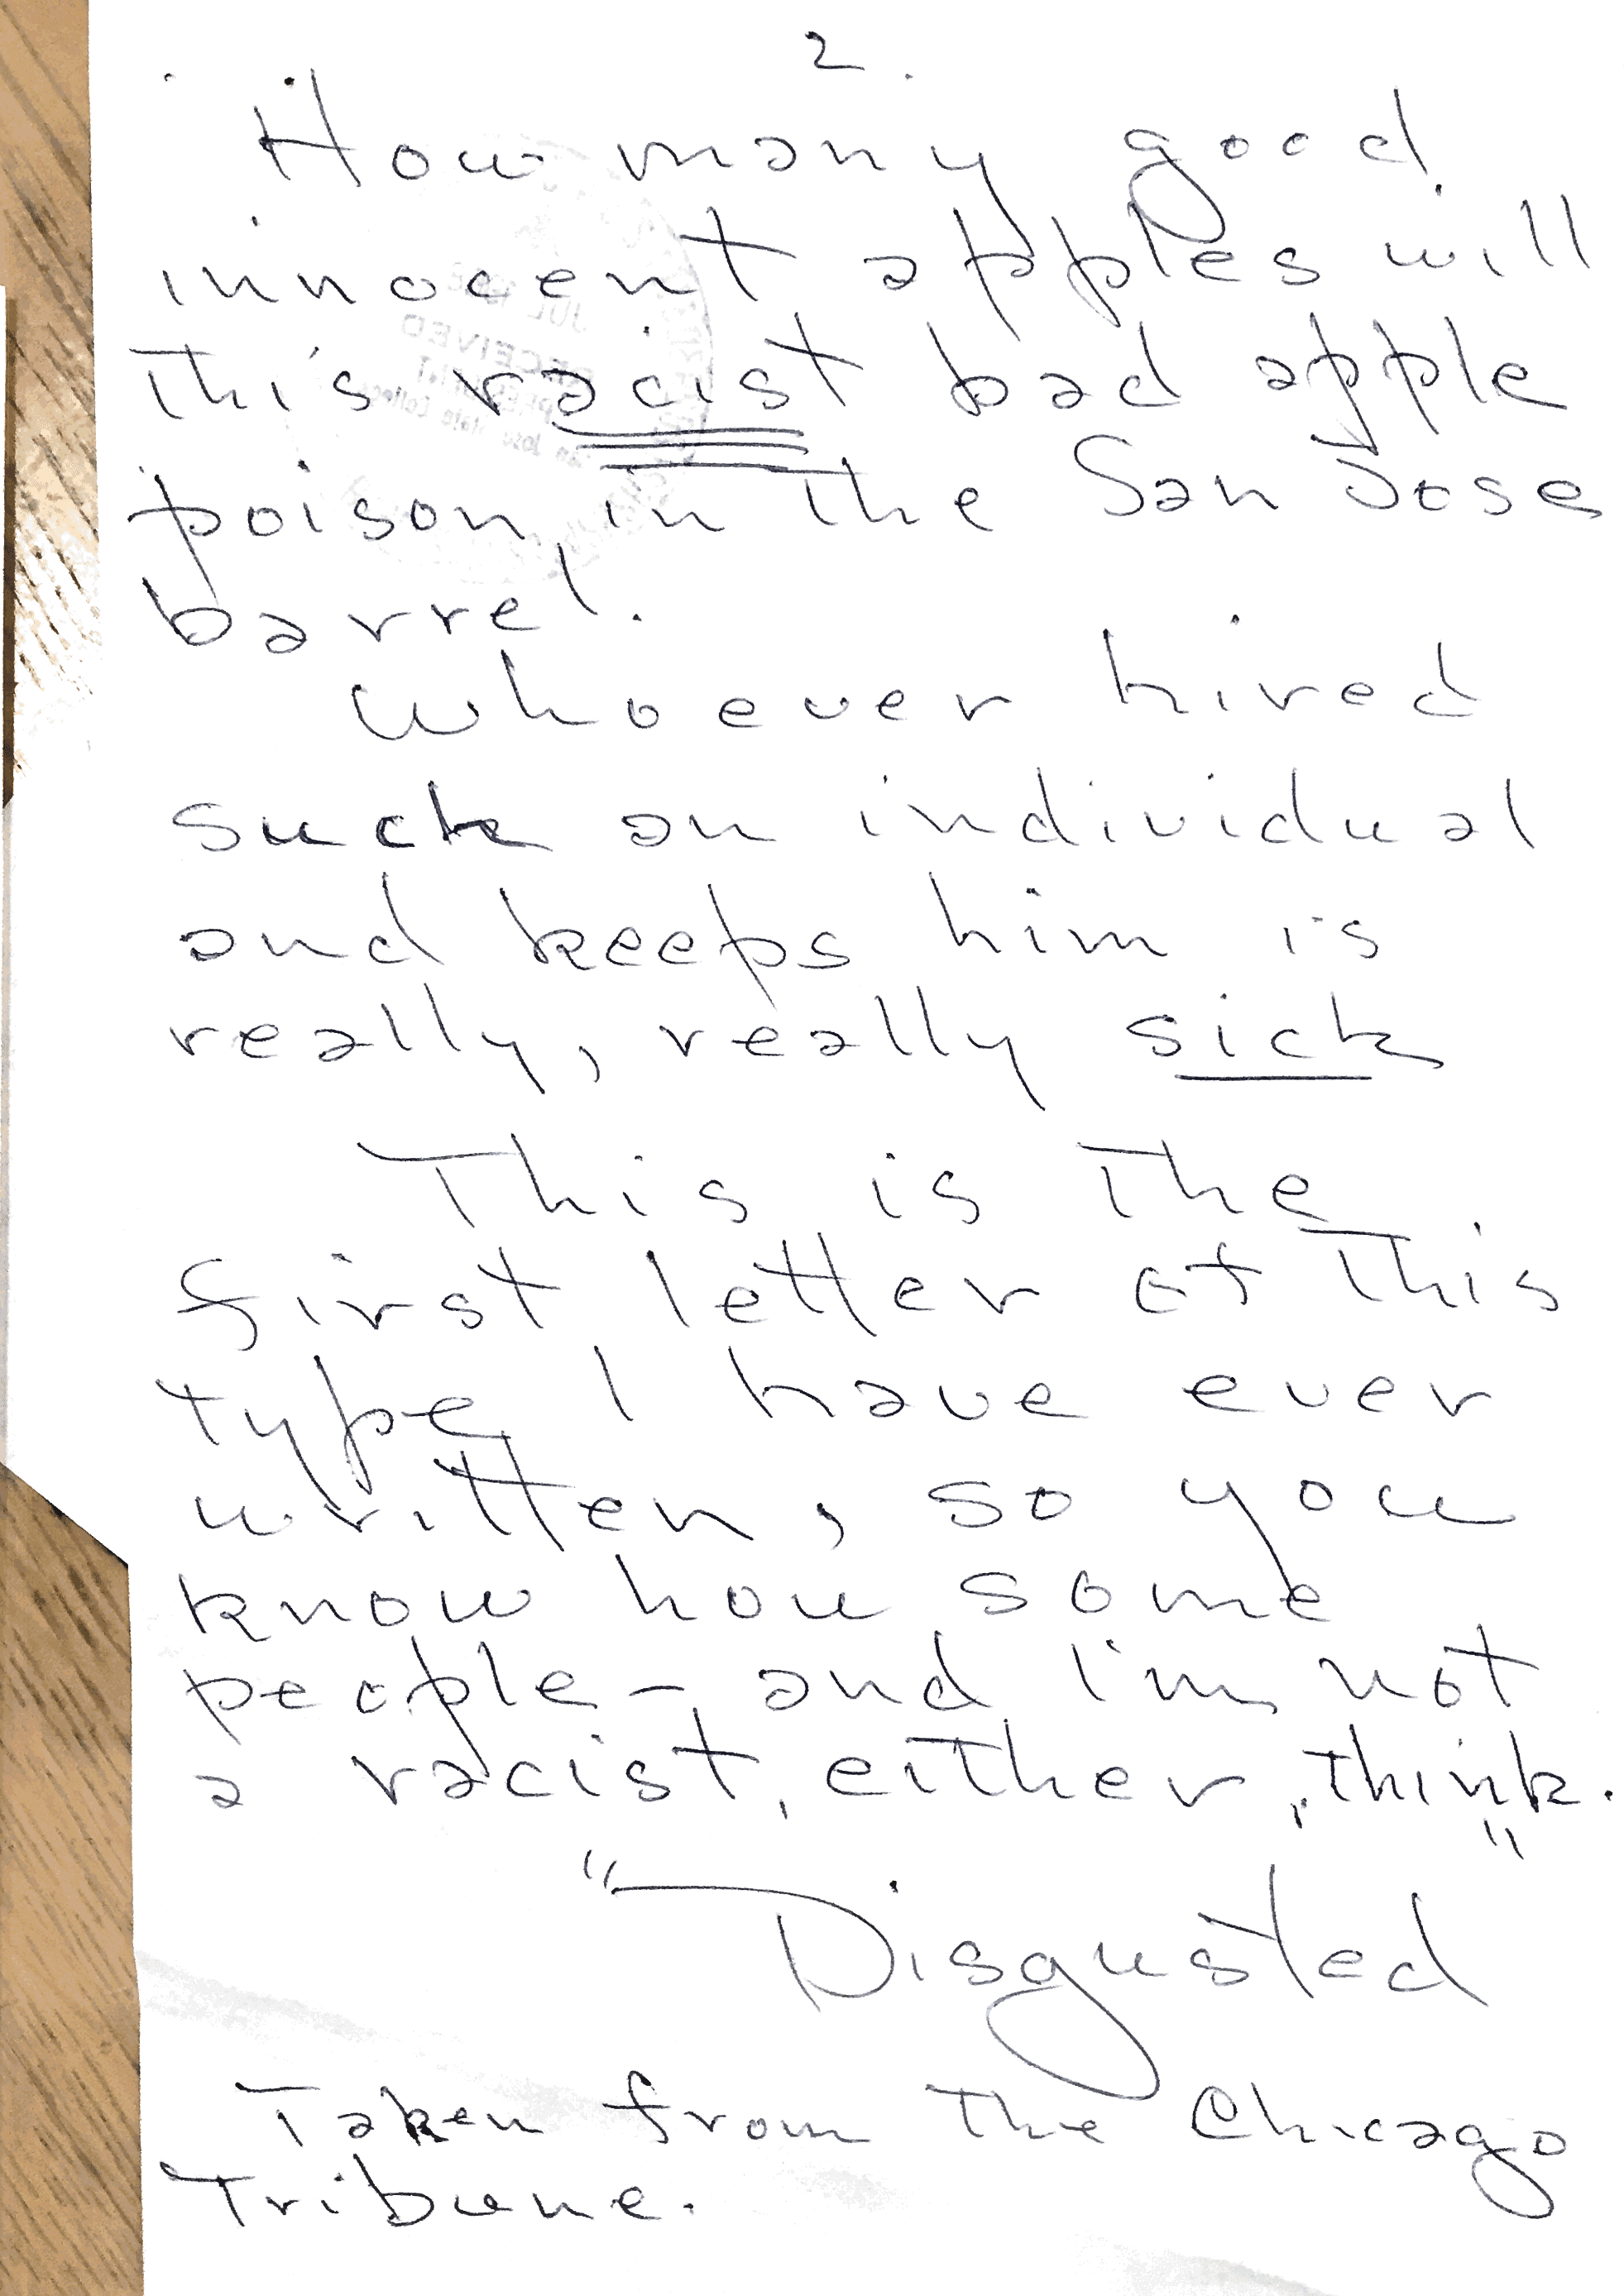 2.
How many good
innocent apples will
this racist bad apple
poison in the San Jose
barrel.
Whoever hired
such an individual
and keeps him is
really, really sick
This is the
first letter of this
type I have ever
written, so you
know how some
people - and I'm not
a racist, either, think.
"Disgusted"
Taken from the Chicago
Tribune.
JUL
RECEIVED